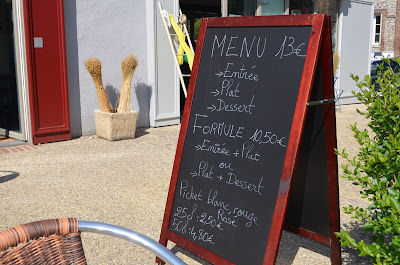 MENU 13€
→Entrée
→Plat
→Dessert
FORMULE 10,50€
→Entrée + Plat
ou
→Plat + Dessert
Picket blanc, rouge
Rosé
25cl: 2,50€
50cl: 4,80€
€